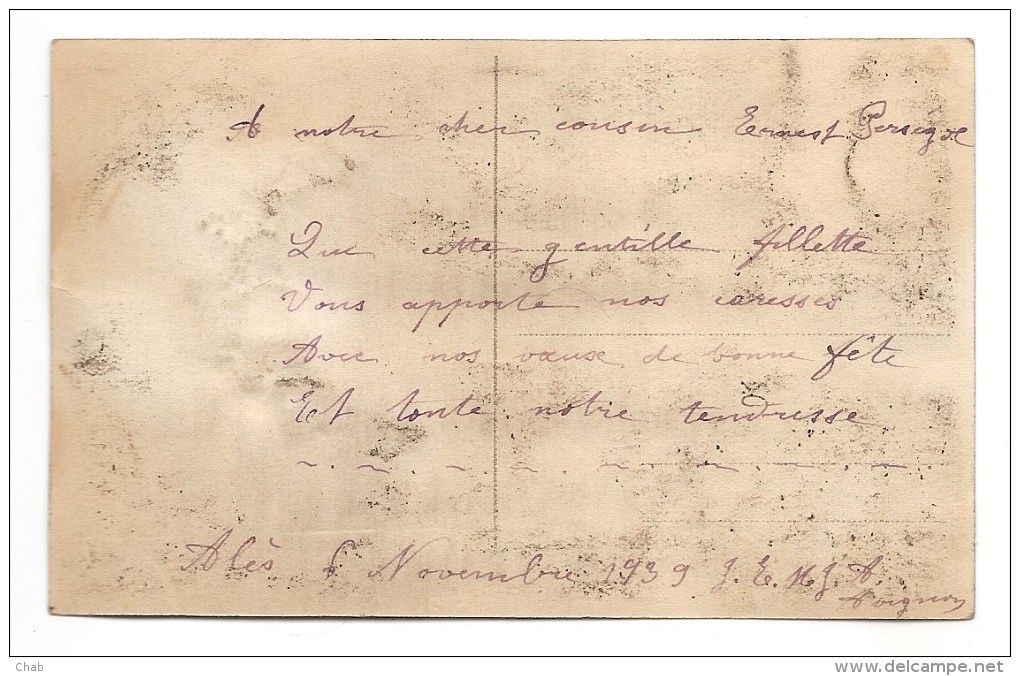 A notre cher cousin Ernest
Que cette gentille fillette
Vous apporte nos caresses
Avec nos vœux de bonne fête
Et toute notre tendresse
Alès 6 Novembre 1939 J. E. M. J. A.
Avignon
Chab
www.delcampe.net